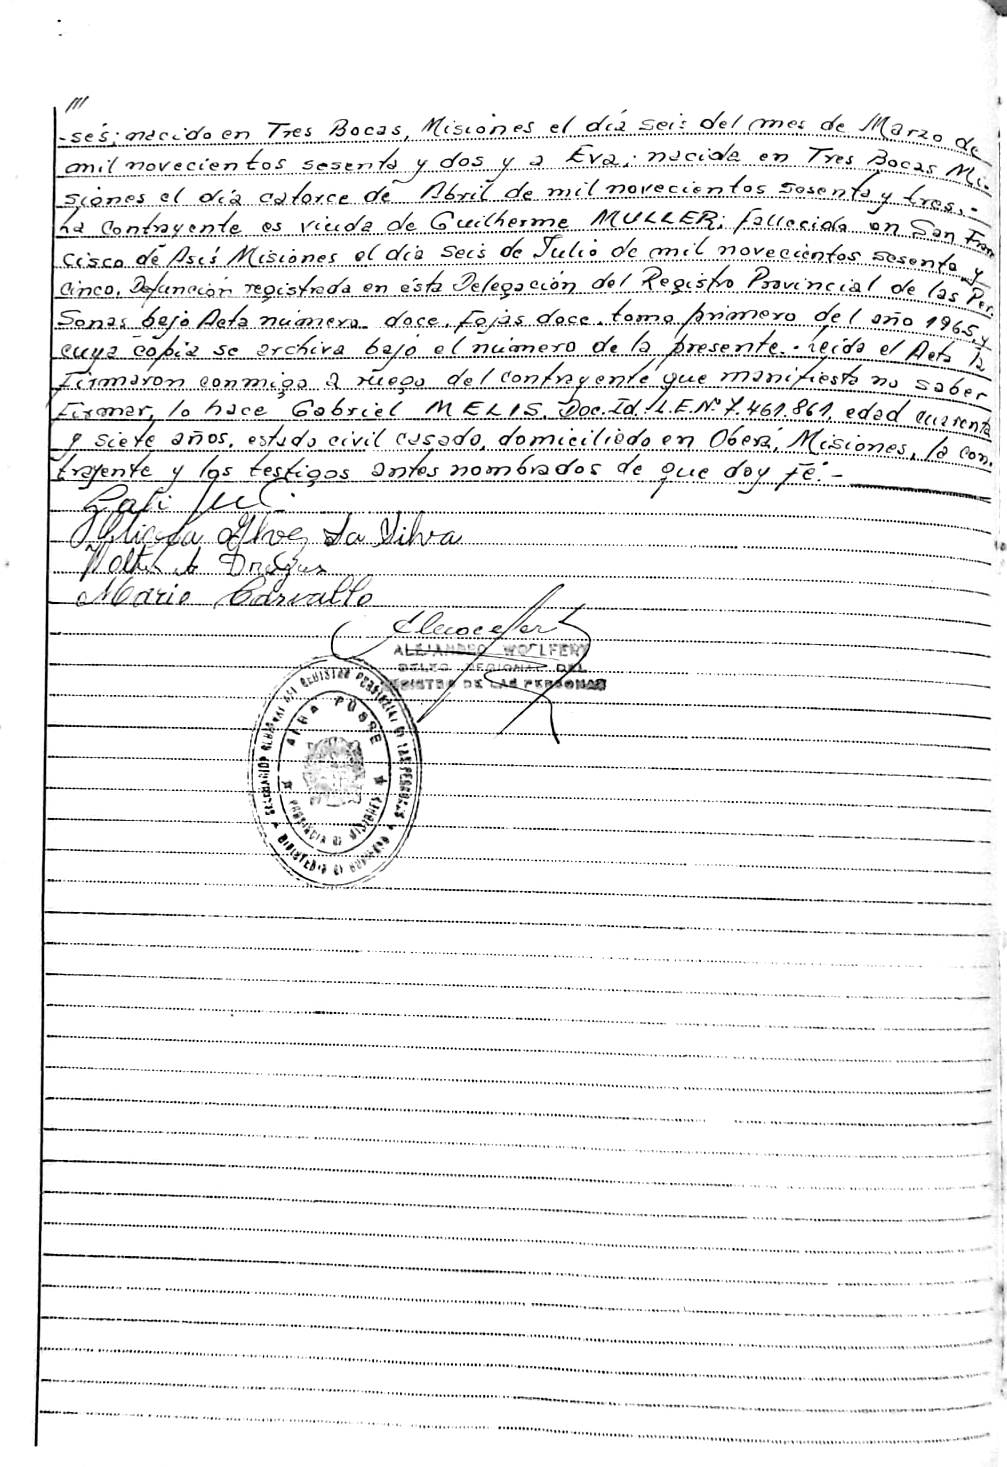 ///
-sés; nacido en Tres Bocas, Misiones el día seis del mes de Marzo de
mil novecientos sesenta y dos y a Eva; nacida en Tres Bocas Mi-
siones el día catorce de Abril de mil novecientos sesenta y tres.-
La contrayente es viuda de Guilherme MULLER; fallecido en San Fran
cisco de Asís Misiones el día seis de Julio de mil novecientos sesenta y
cinco. Defunción registrada en ésta Delegación del Registro Provincial de las Per
sonas bajo Acta número doce. Fojas doce. tomo primero del año 1965, y
cuya copia se archiva bajo el número de la presente.- Leída el Acta la
firmaron conmigo a ruego del contrayente que manifiesta no saber
firmar, lo hace Gabriel MELIS, Doc. Id. L.E. Nº 7.461.861, edad cuarenta
y siete años, estado civil casado, domiciliado en Oberá, Misiones, la con.
trayente y los testigos antes nombrados de que doy fé.-
Alves da Silva
Mario Carvallo
ALEJANDRO WOLFERT
DELEG. REGIONAL DEL
REGISTRO DE LAS PERSONAS
DEL REGISTRO PROVINCIAL DE LAS PERSONAS
ALBA POSSE
PROVINCIA DE MISIONES
MINISTERIO DE GOBIERNO